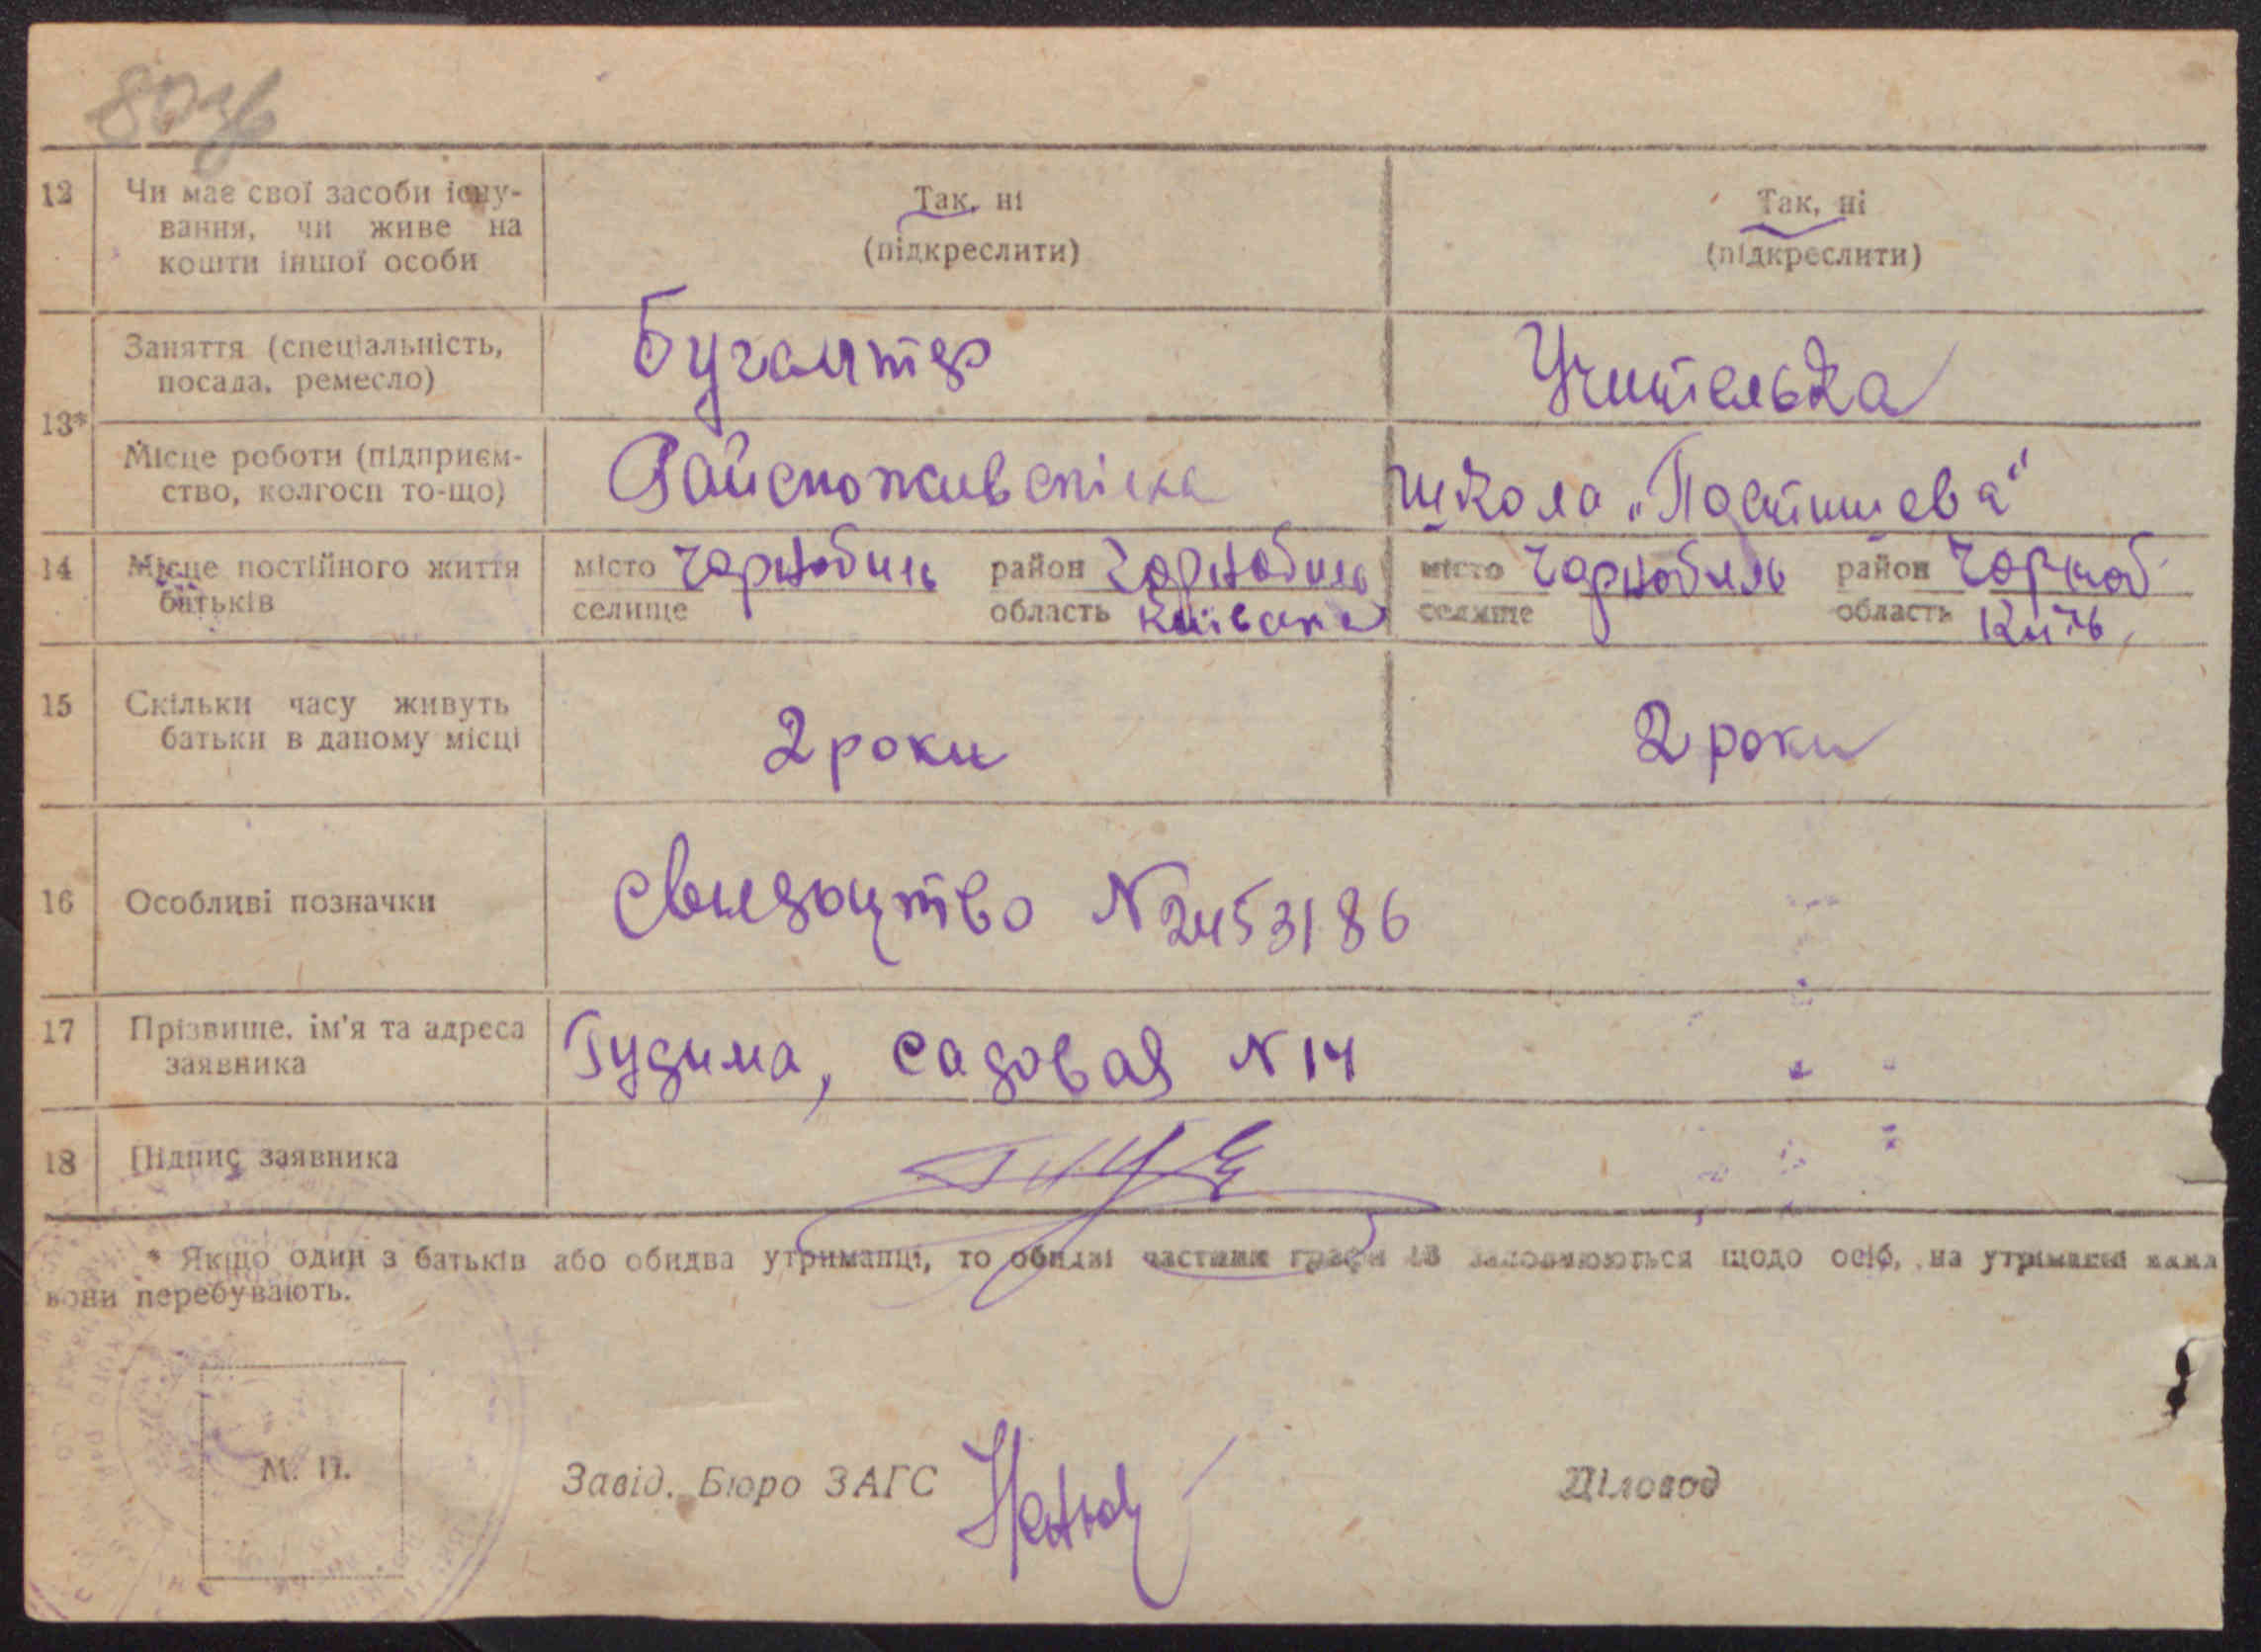 12 Чи має свої засоби існу-
вання, чи живе на
кошти іншої особи
Так, ні
(підкреслити)
Так, ні
(підкреслити)
13*
Заняття (спеціальність,
посада, ремесло)
Бугалтер
Учителька
Місце роботи (підприєм-
ство, колгосп то-що)
Райспоживспілка
школа „Постишева"
14 Місце постійного життя
батьків
місто Чорнобиль район Чорнобиль
селище область Київська
місто Чорнобиль район Чорноб
селище область Київ,
15 Скільки часу живуть
батьки в даному місці
2 роки
2 роки
16 Особливі позначки
Свидоцтво N 2453186
17 Прізвище, ім'я та адреса
заявника
Гудима, Садовая N 14
18 Підпис заявника
* Якщо один з батьків або обидва утриманці, то обидві частини графи 13 заповнюються щодо осіб, на утриманні яких
вони перебувають.
М. П.
Завід. Бюро ЗАГС
Діловод